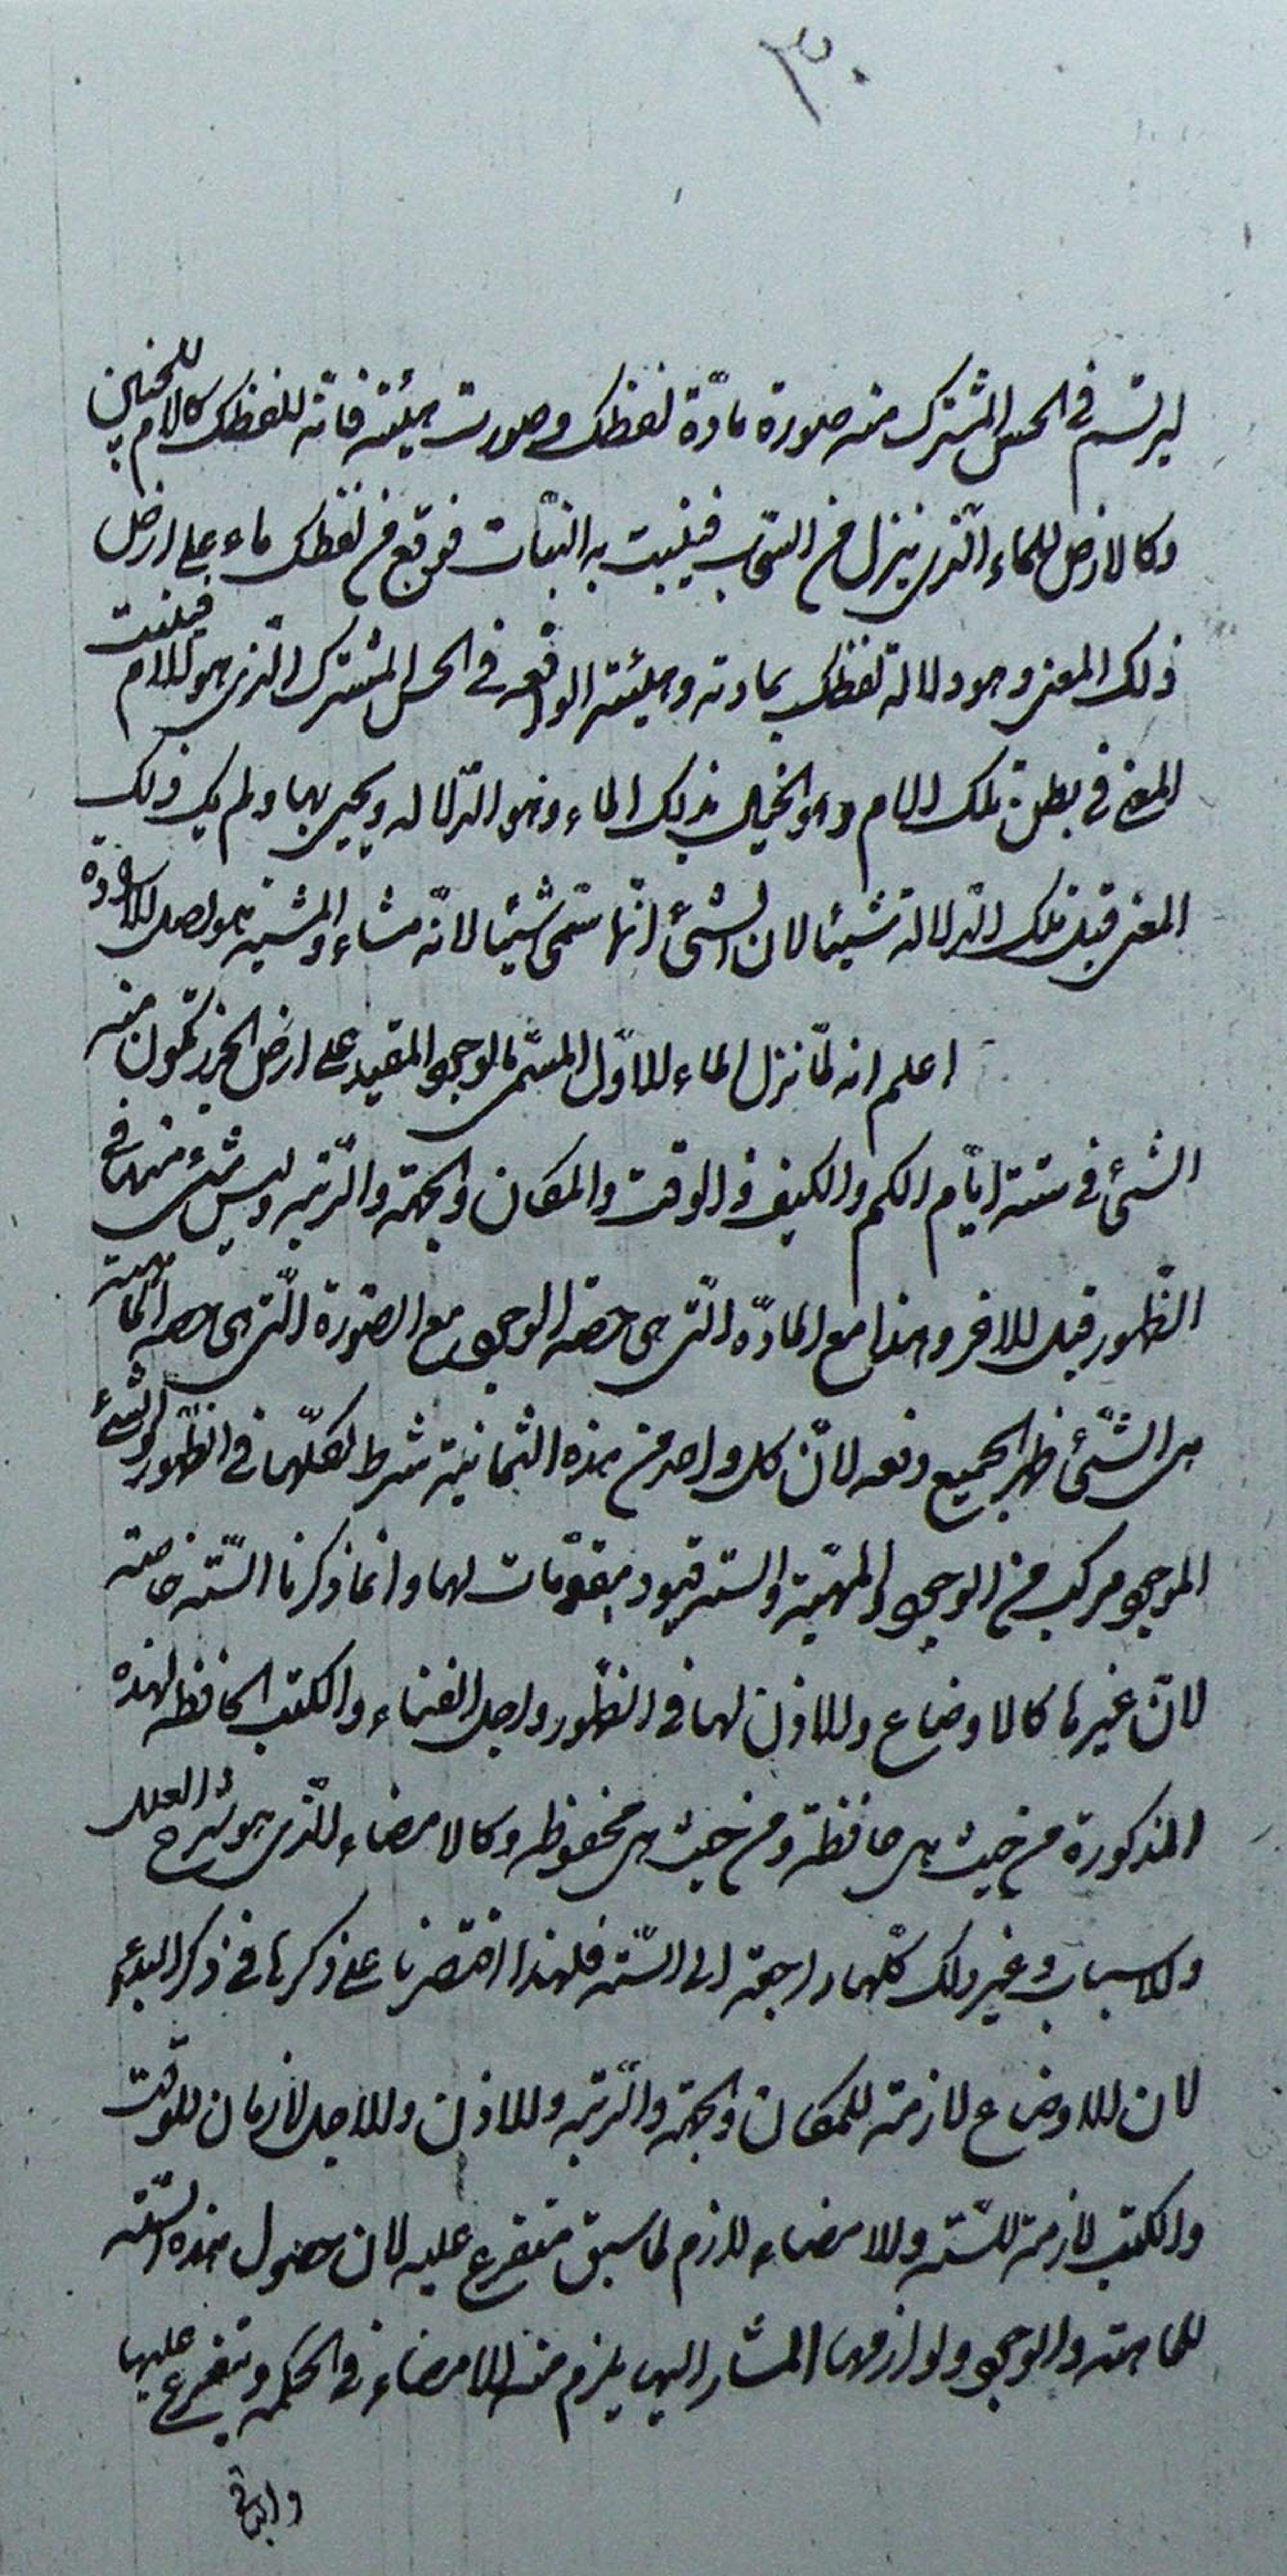 ٣٠
ليرتسم فى الحس المشترك منه صورة مادّة لفظك و صورت هيئته فانه للفظك كالام للجنين
وكالارض للماء الّذى ينزل من السّحاب فينبت به النبات فوقع من لفظك ماء على ارض
ذلك المعنى وهو دلالة لفظك بمادته وهيئته الواقعه فى الحس المشترك الّذى هو كالام فينبت
المعنى فى بطن تلك الام وهو الخيال بذلك الماء وهو الدّلاله ويحيى بها ولم يك ذلك
المعنى قبل تلك الدّلالة شيئا لان الشئ انّما سمّى شيئا لانّه مشاء والمشية هو اصل الافادة
اعلم انه لمّا نزل الماء الاوّل المسمّى بالوجود المقيد على ارض الجرز تكون منه
الشئ فى ستة ايّام الكم والكيف والوقت والمكان والجهة والرّتبه وليس شئ منها فى
الظّهور قبل الاخر وهذا مع المادّه الّتى هى حصه الوجود مع الصّورة الّتى هى حصه الماهية
هى الشّئ ظهر الجميع دفعه لانّ كل واحد من هذه الثمانية شرط لكلّها فى الظّهور والشئ
الموجود مركب من الوجود والمهيّة والسته قيود مقوّمات لهما وانما ذكرنا السّتّه خاصّته
لانّ غيرها كالاوضاع والاذن لها فى الظّهور واجل الفناء والكتب الحافظه لهذه
المذكورة من حيث هى حافظة ومن حيث هى محفوظه وكالامضاء الّذى هو شرح العلل
والاسباب وغير ذلك كلّها راجعة الى السّته فلهذا اقتصرنا على ذكرها فى ذكر البدء
لان الاوضاع لازمة للمكان والجهة والرّتبه والاذن والاجل لازمان للوقت
والكتب لازمة للستّه والامضاء لازم لما سبق متفرع عليه لان حصول هذه السّتّه
للماهيته والوجود ولوازمها المشار اليها يلزم منه الامضاء فى الحكمه ويتفرع عليها